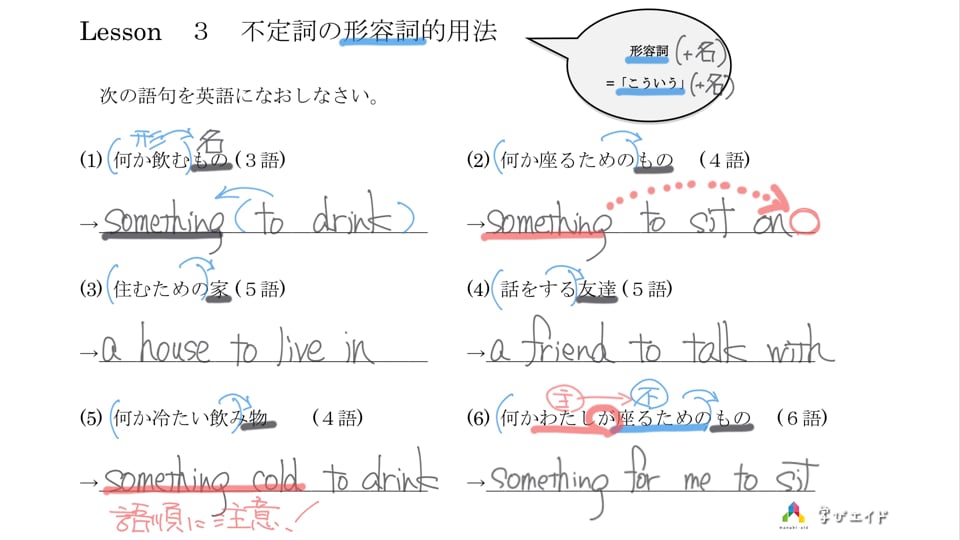 Lesson 3 不定詞の形容詞的用法
形容詞 (+名)
=「こういう」(+名)
次の語句を英語になおしなさい。
形 名
(1) (何か飲む)もの (3語)
→ something (to drink)
(2) (何か座るための)もの (4語)
→ something to sit on
(3) (住むための)家 (5語)
→ a house to live in
(4) (話をする)友達 (5語)
→ a friend to talk with
(5) (何か冷たい飲み)物 (4語)
→ something cold to drink
語順に注意!
主 → 不
(6) (何かわたしが座るための)もの (6語)
→ something for me to sit
manabi-aid 学びエイド